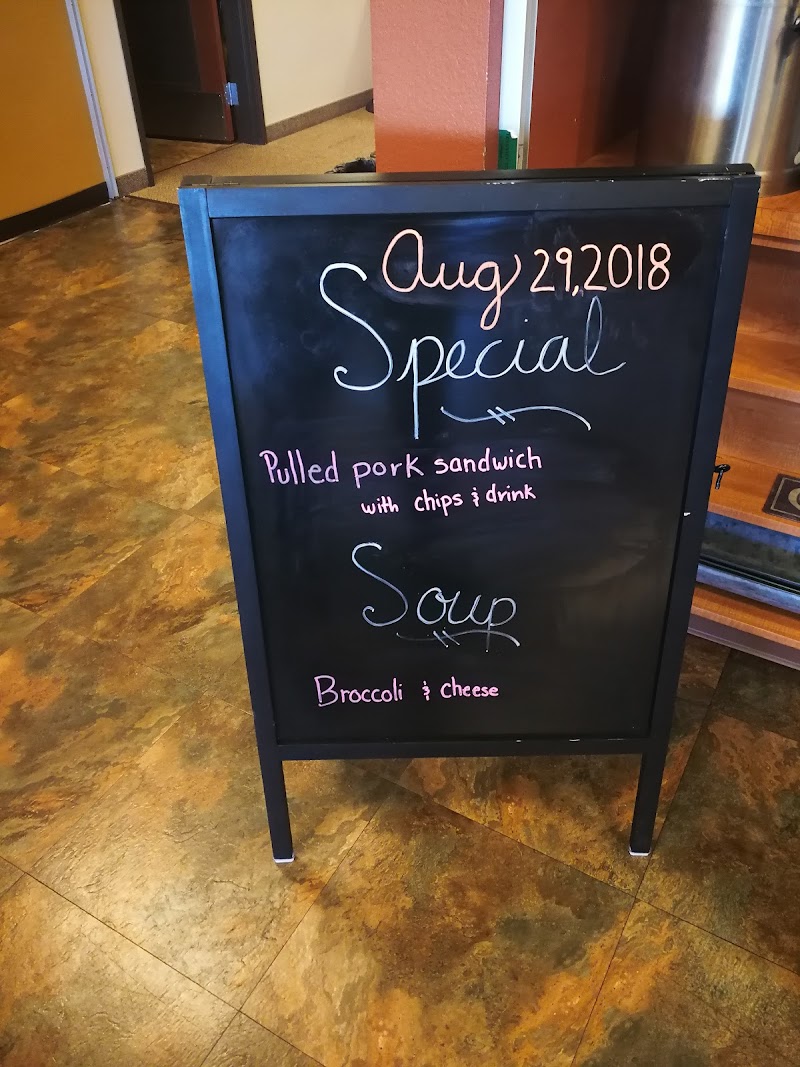 Aug 29, 2018
Special
Pulled pork sandwich
with chips & drink
Soup
Broccoli & cheese